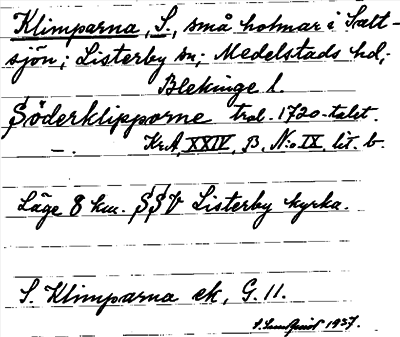 Klimparna, S., små holmar i Salt-
sjön; Listerby sn; Medelstads hd,
Blekinge l.
Söderklipporne trol. 1720-talet.
—. KrA, XXIV, B. N:o IX, lit. b.
Läge 8 km. SSV Listerby kyrka.
S. Klimparna ek, G. 11.
1937.